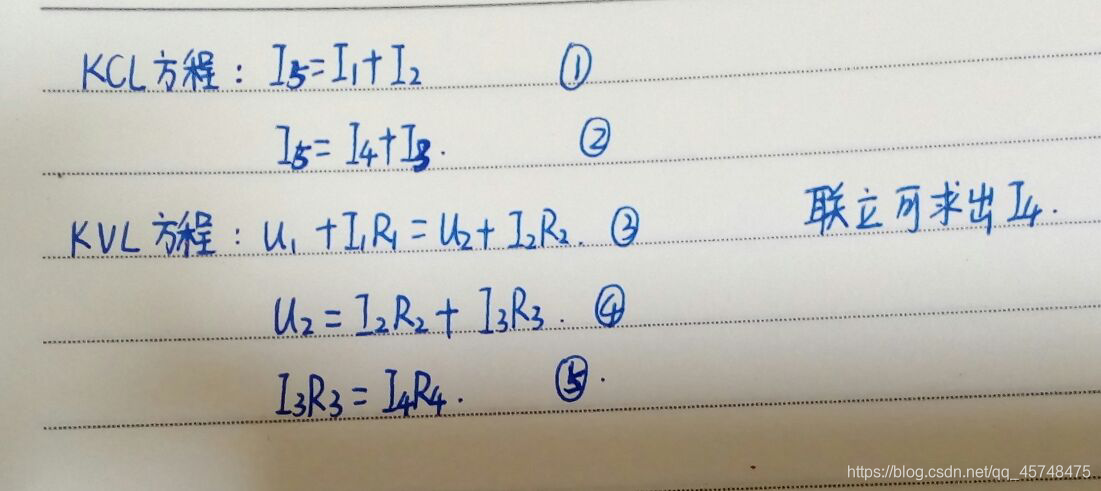 KCL方程: I5=I1+I2 ①
I5=I4+I3. ②
联立可求出I4.
KVL方程: U1+I1R1=U2+I2R2. ③
U2=I2R2+I3R3. ④
I3R3=I4R4. ⑤.
https://blog.csdn.net/qq_45748475